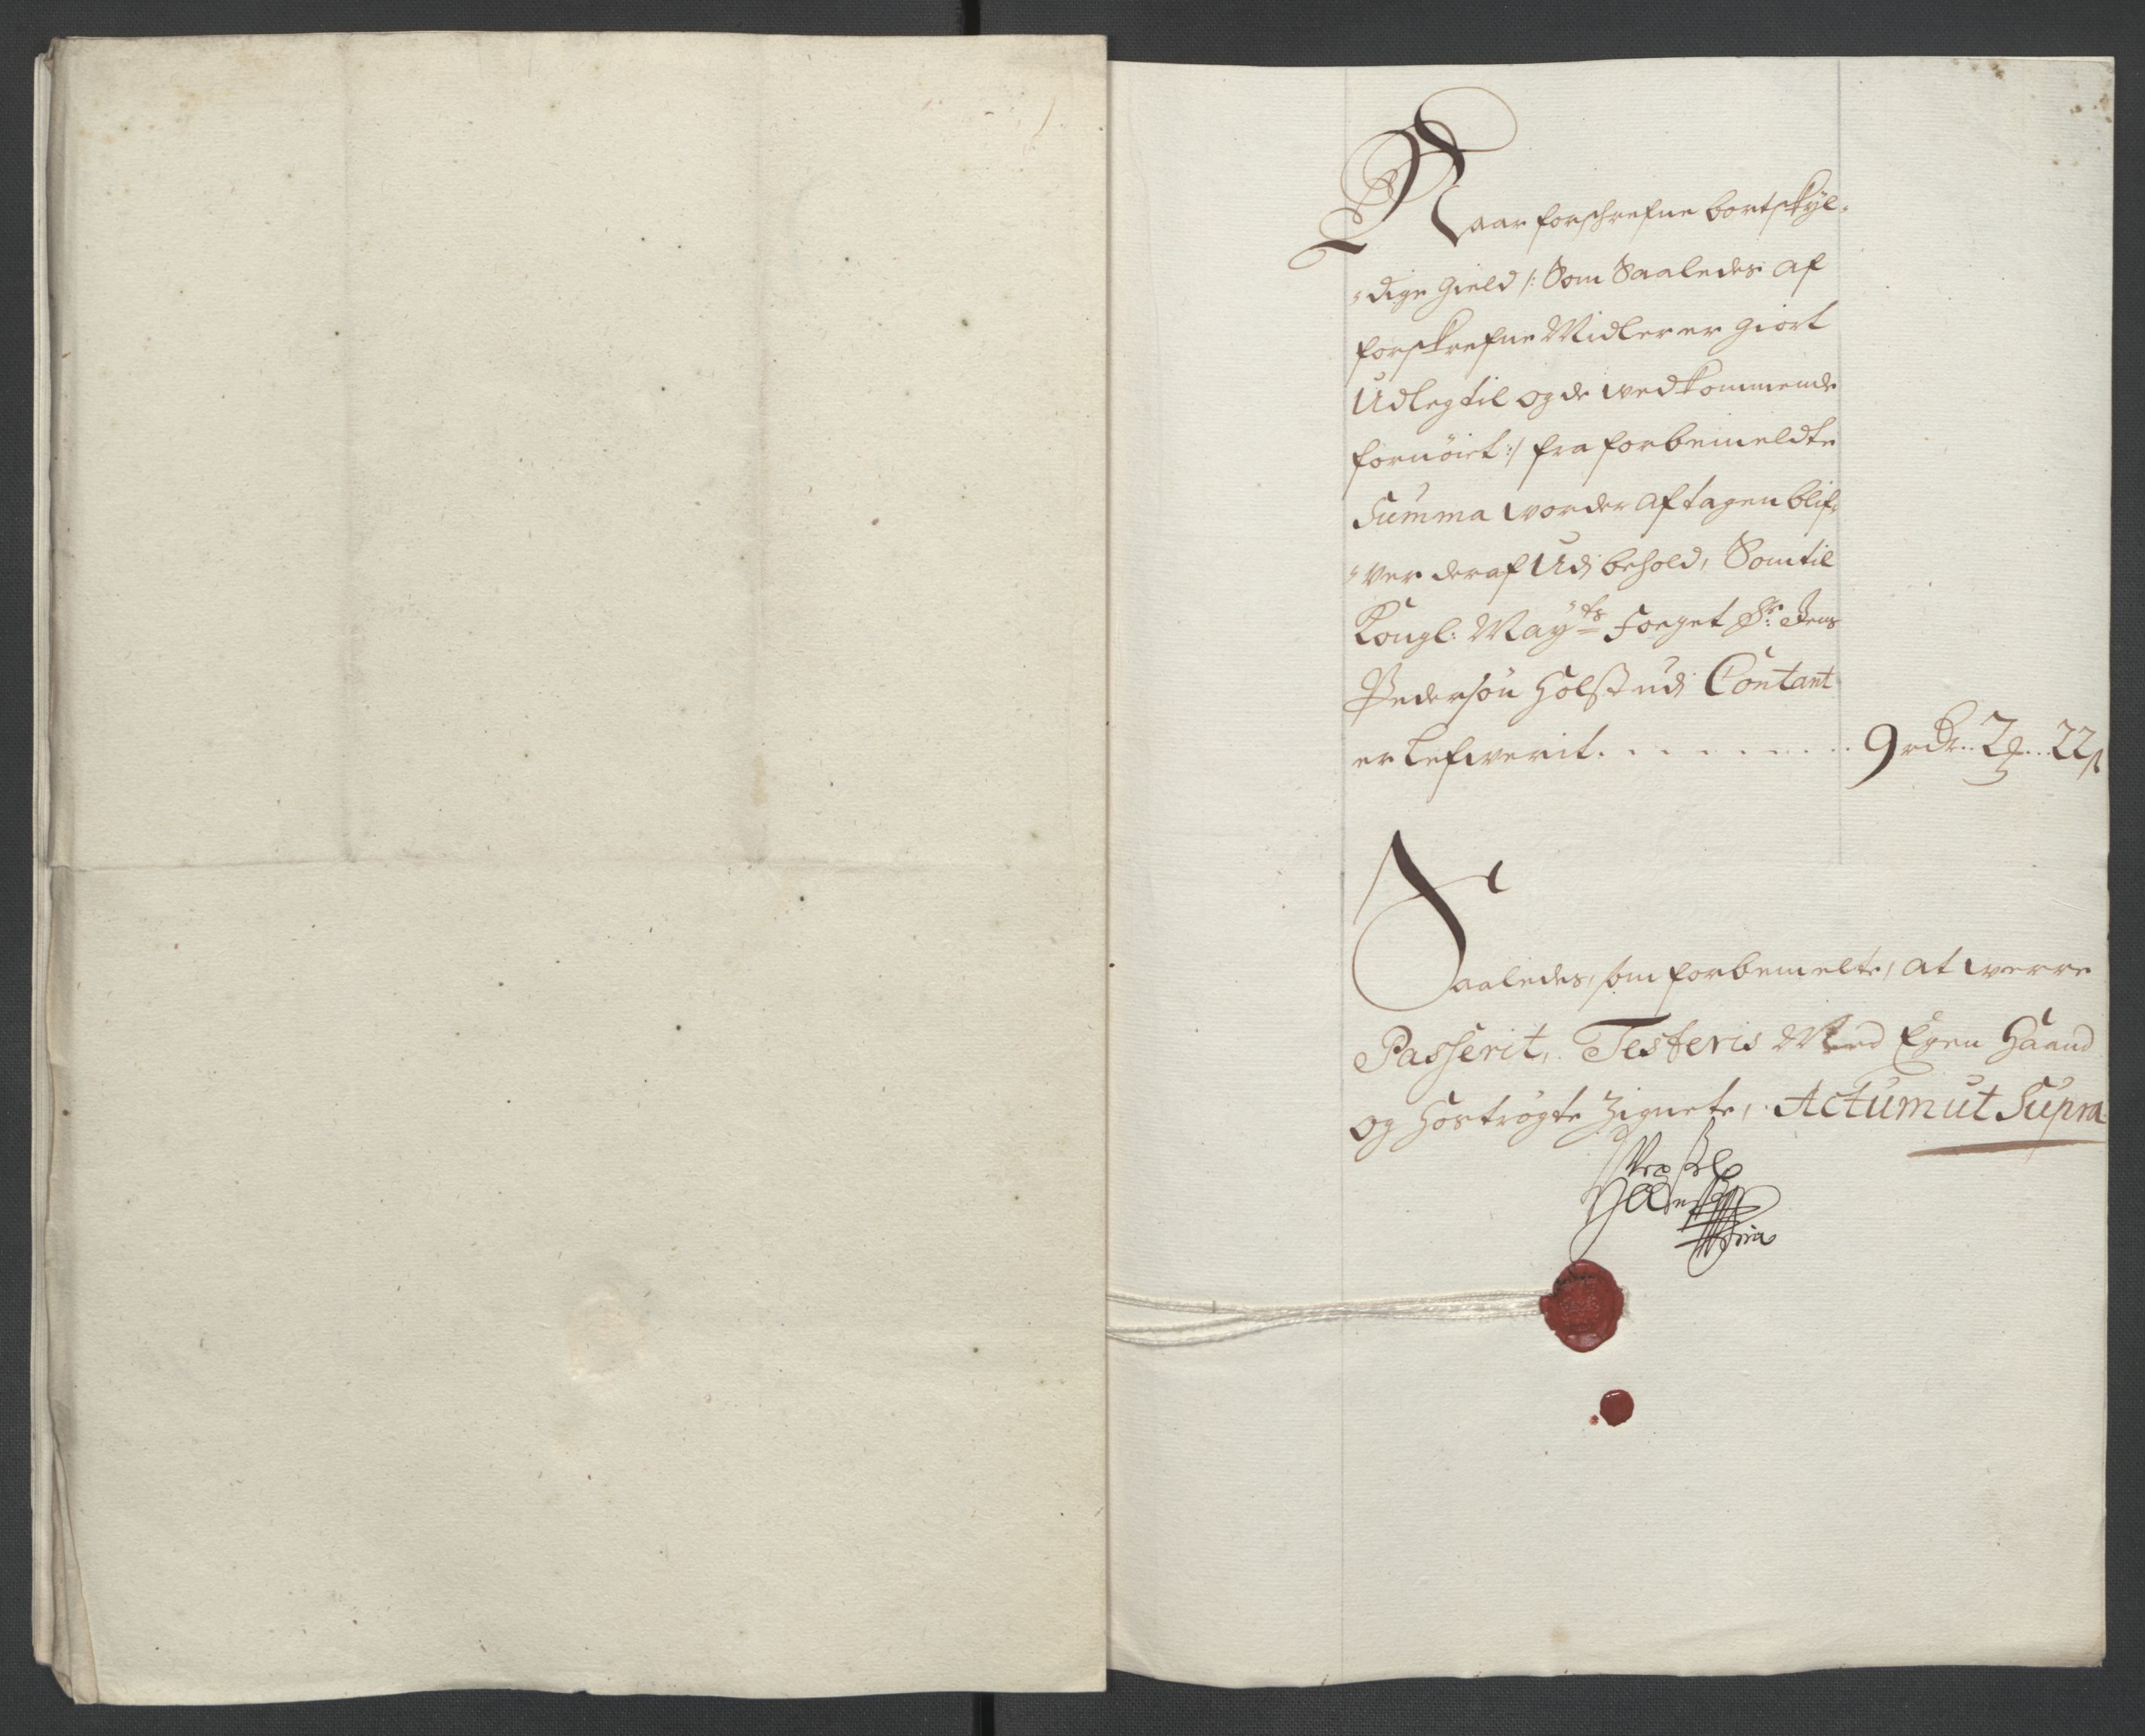 Naar forschrefne bortskÿl-
-dige gield /: Som Saaledes af
forskrefne Midler er giort
Udleg til og de wedkommende
fornöiet :/ fra forbemeldte
Summa worder aftagen blif-
-ver deraf Udj behold, Som til
Kongl: Mayts Foeget Sr: Jens
Pedersön Holst udj Contant
er Lefwerit. . . . . . . . . 9 rdr. 2 . 22 s
Saaledes, som forbemelte, at werre
Passerit, Testeris Med Egen Haand
og Hoströgte Zignete, Actum ut Supra